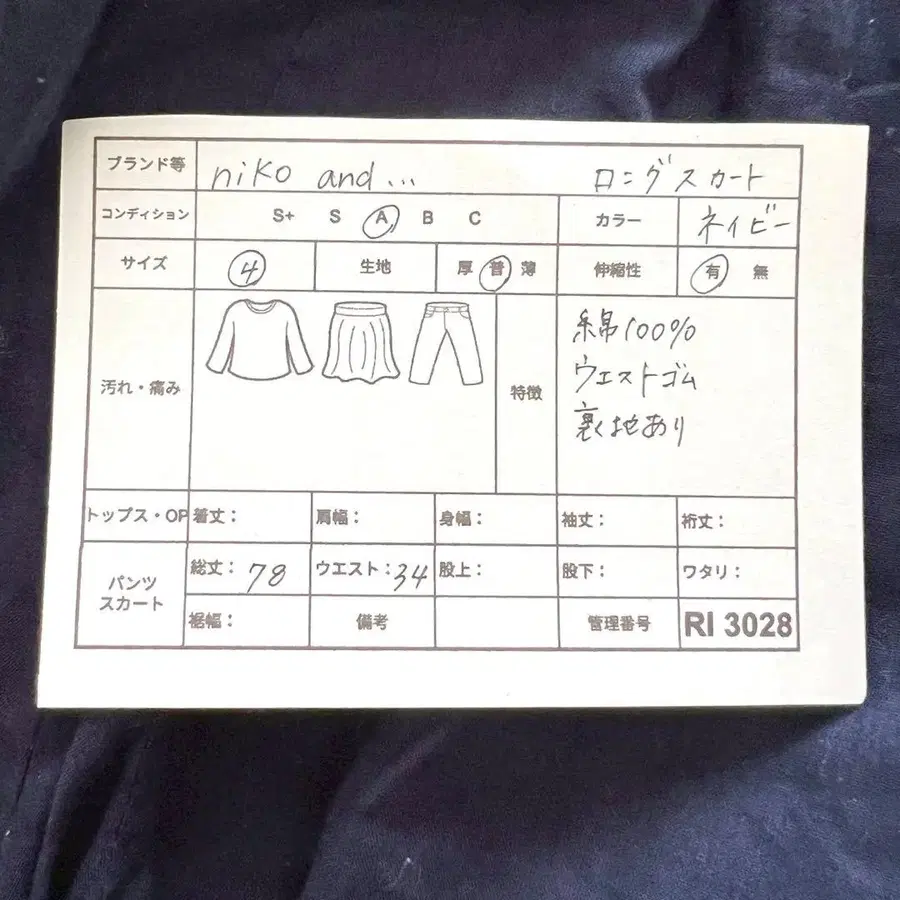 ブランド等 niko and... ロングスカート
コンディション S+ S A B C カラー ネイビー
サイズ 4 生地 厚 普 薄 伸縮性 有 無
汚れ・痛み 特徴 綿100%
ウエストゴム
裏地あり
トップス・OP 着丈: 肩幅: 身幅: 袖丈: 裄丈:
パンツ スカート 総丈: 78 ウエスト: 34 股上: 股下: ワタリ:
裾幅: 備考 管理番号 RI 3028